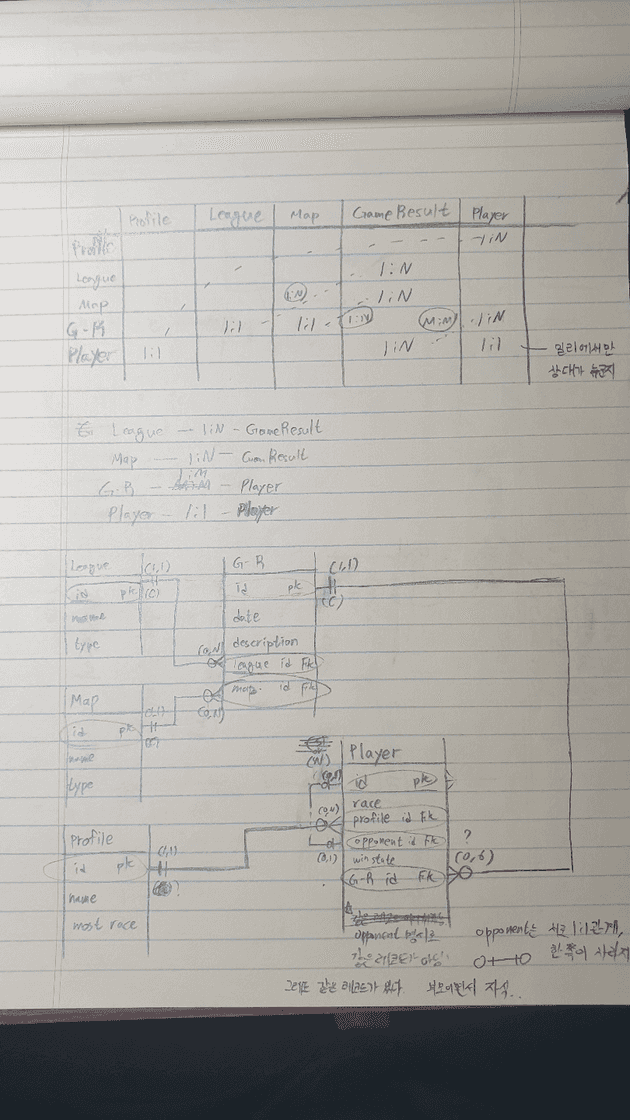 Profile League Map GameResult Player
Profile 1:N
League 1:N
Map 1:N 1:N
G-R 1:1 1:1 1:N M:M 1:N
Player 1:1 1:N 1:1 밀리에서만
상대가 누군지
League — 1:N — GameResult
Map — 1:N — GameResult
G-R — 1:M — Player
Player — 1:1 — Player
League
id pk
name
type
(1,1)
(C)
G-R
id pk
date
description
league id Fk
map id Fk
(1,1)
(C)
(0,N)
(0,N)
Map
id pk
name
type
(1,1)
Player
id pk
race
profile id Fk
opponent id Fk
winstate
G-R id Fk
(N)
(0,N)
(0,1)
?
(0,6)
Profile
id pk
name
most race
(1,1)
?
opponent
같은 레코드가 아님
opponent는 서로 1:1관계,
한쪽이 사라져
그래도 같은 레코드가 부모이면서 자식..